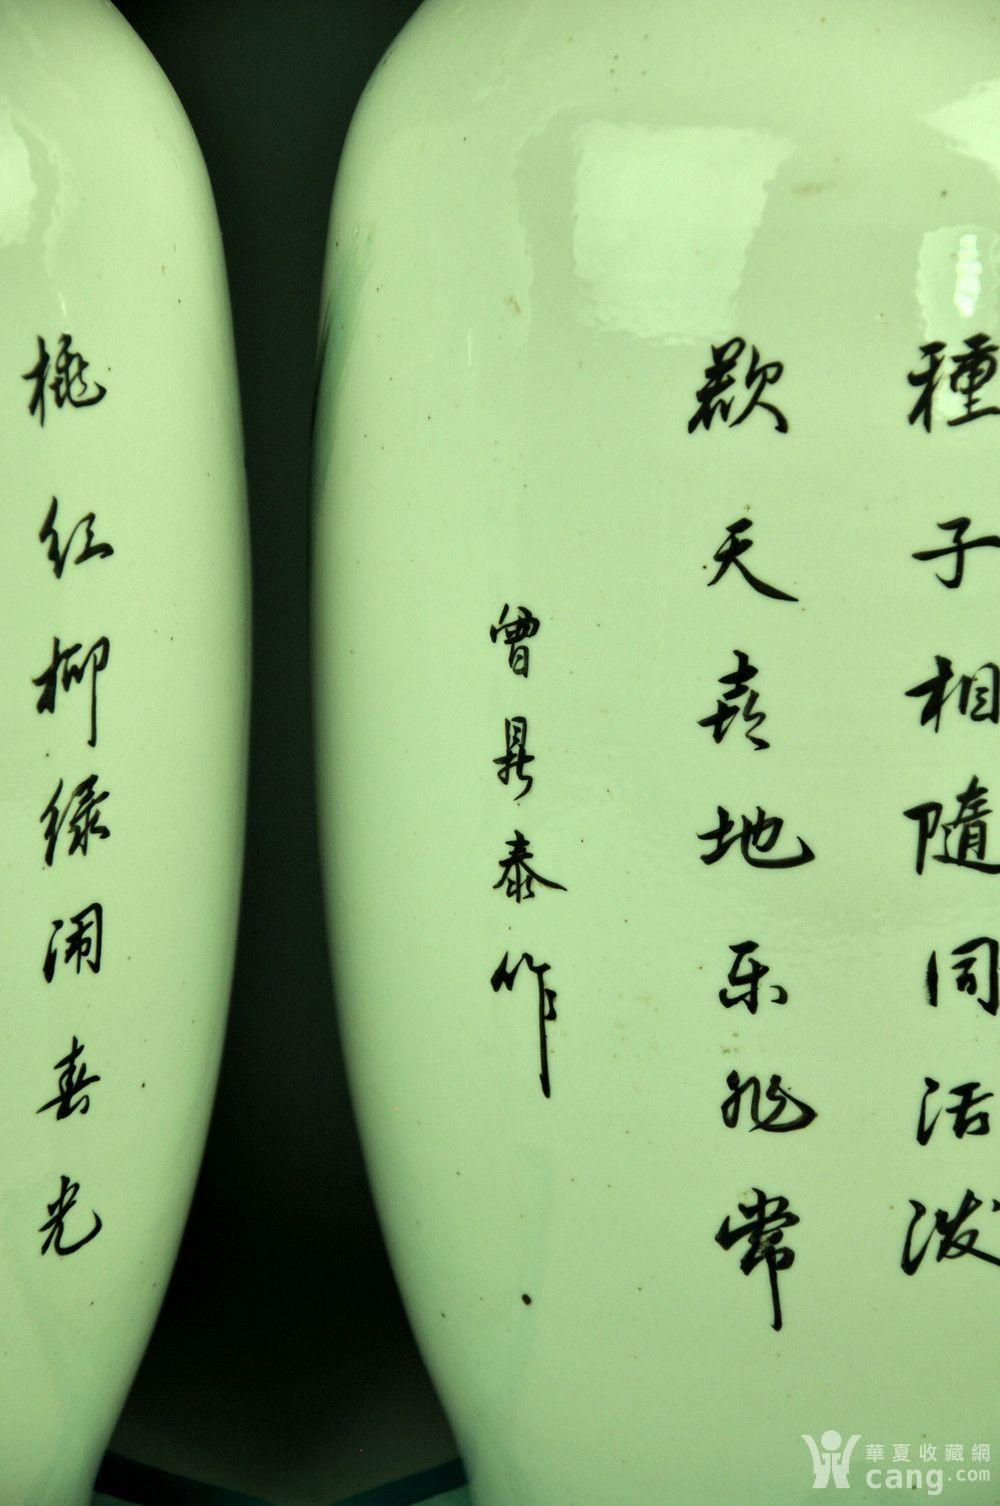 種子相隨同活泼
歡天喜地乐非常
曾鼎泰作
桃红柳绿闹春光
華夏收藏網
cang.com